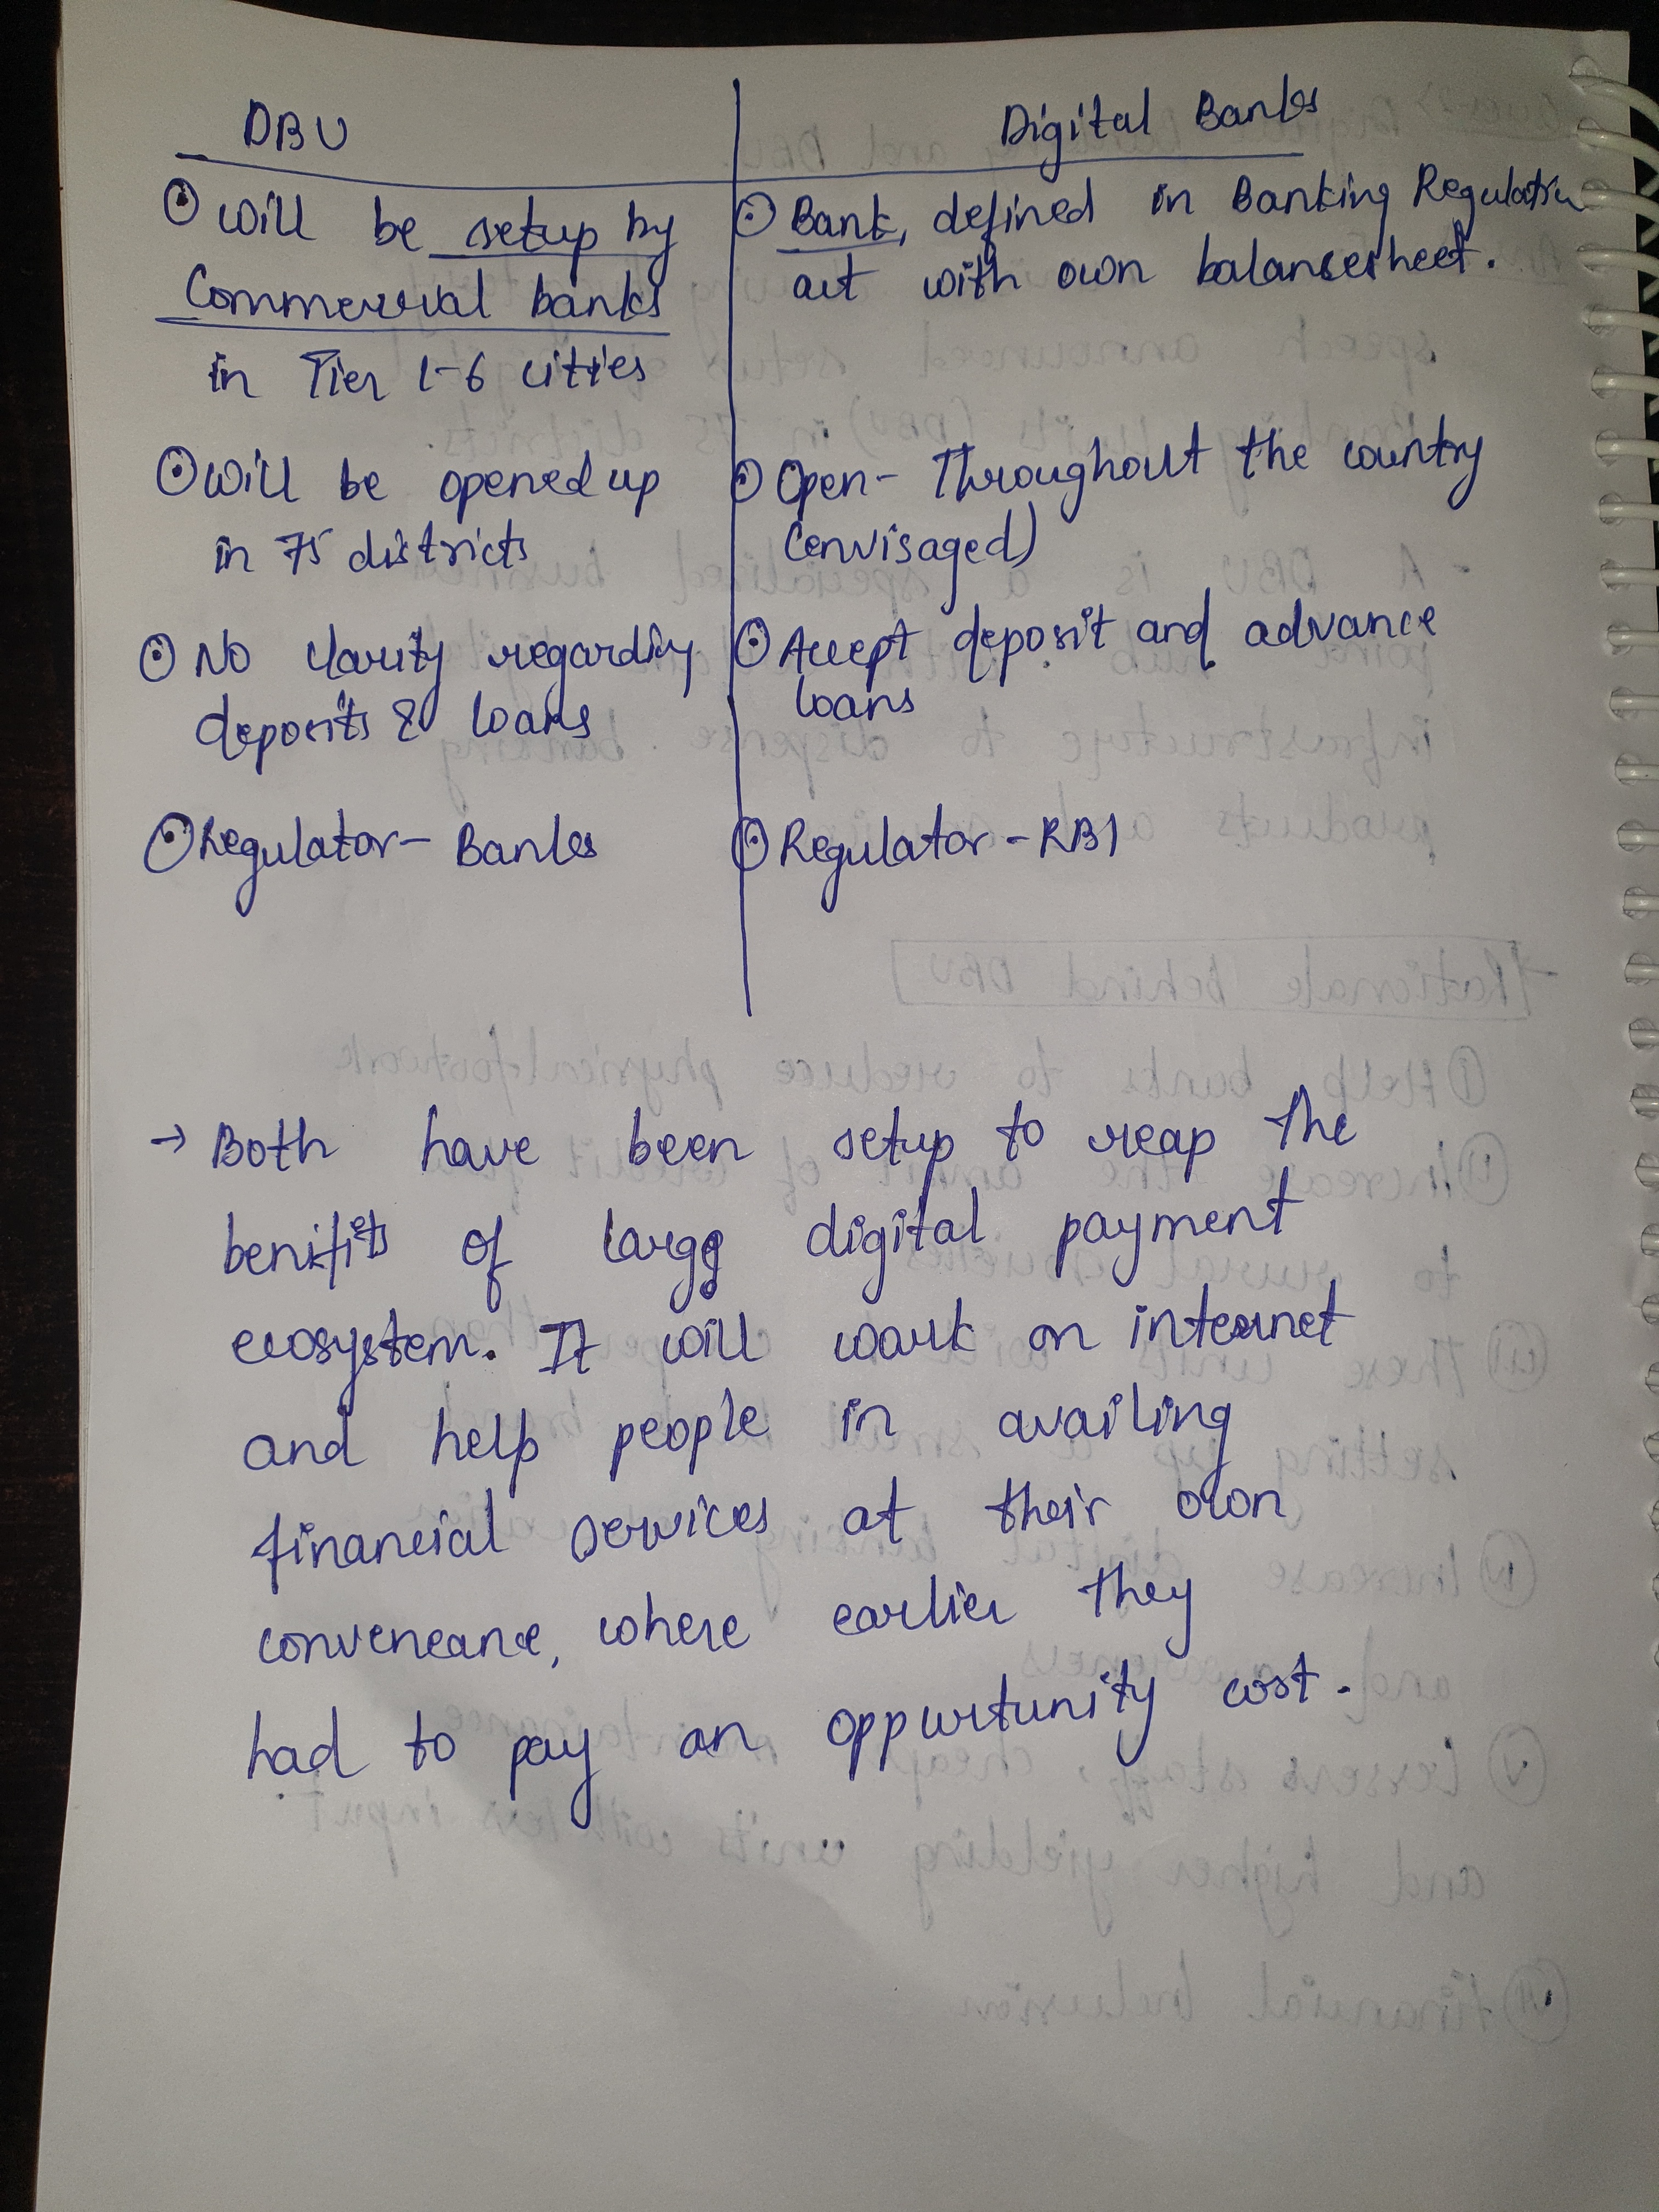 DBU
Digital Banks
will be setup by
Commercial banks
in Tier 1-6 cities
will be opened up
in 75 districts
No clarity regarding
deposits & loans
Regulator - Banks
Bank, defined in Banking Regulation
act with own balancesheet.
Open - Throughout the country
(envisaged)
Accept deposit and advance
loans
Regulator - RBI
→ Both have been setup to reap the
benifits of large digital payment
ecosystem. It will work on internet
and help people in availing
financial services at their own
conveneance, where earlier they
had to pay an oppurtunity cost.